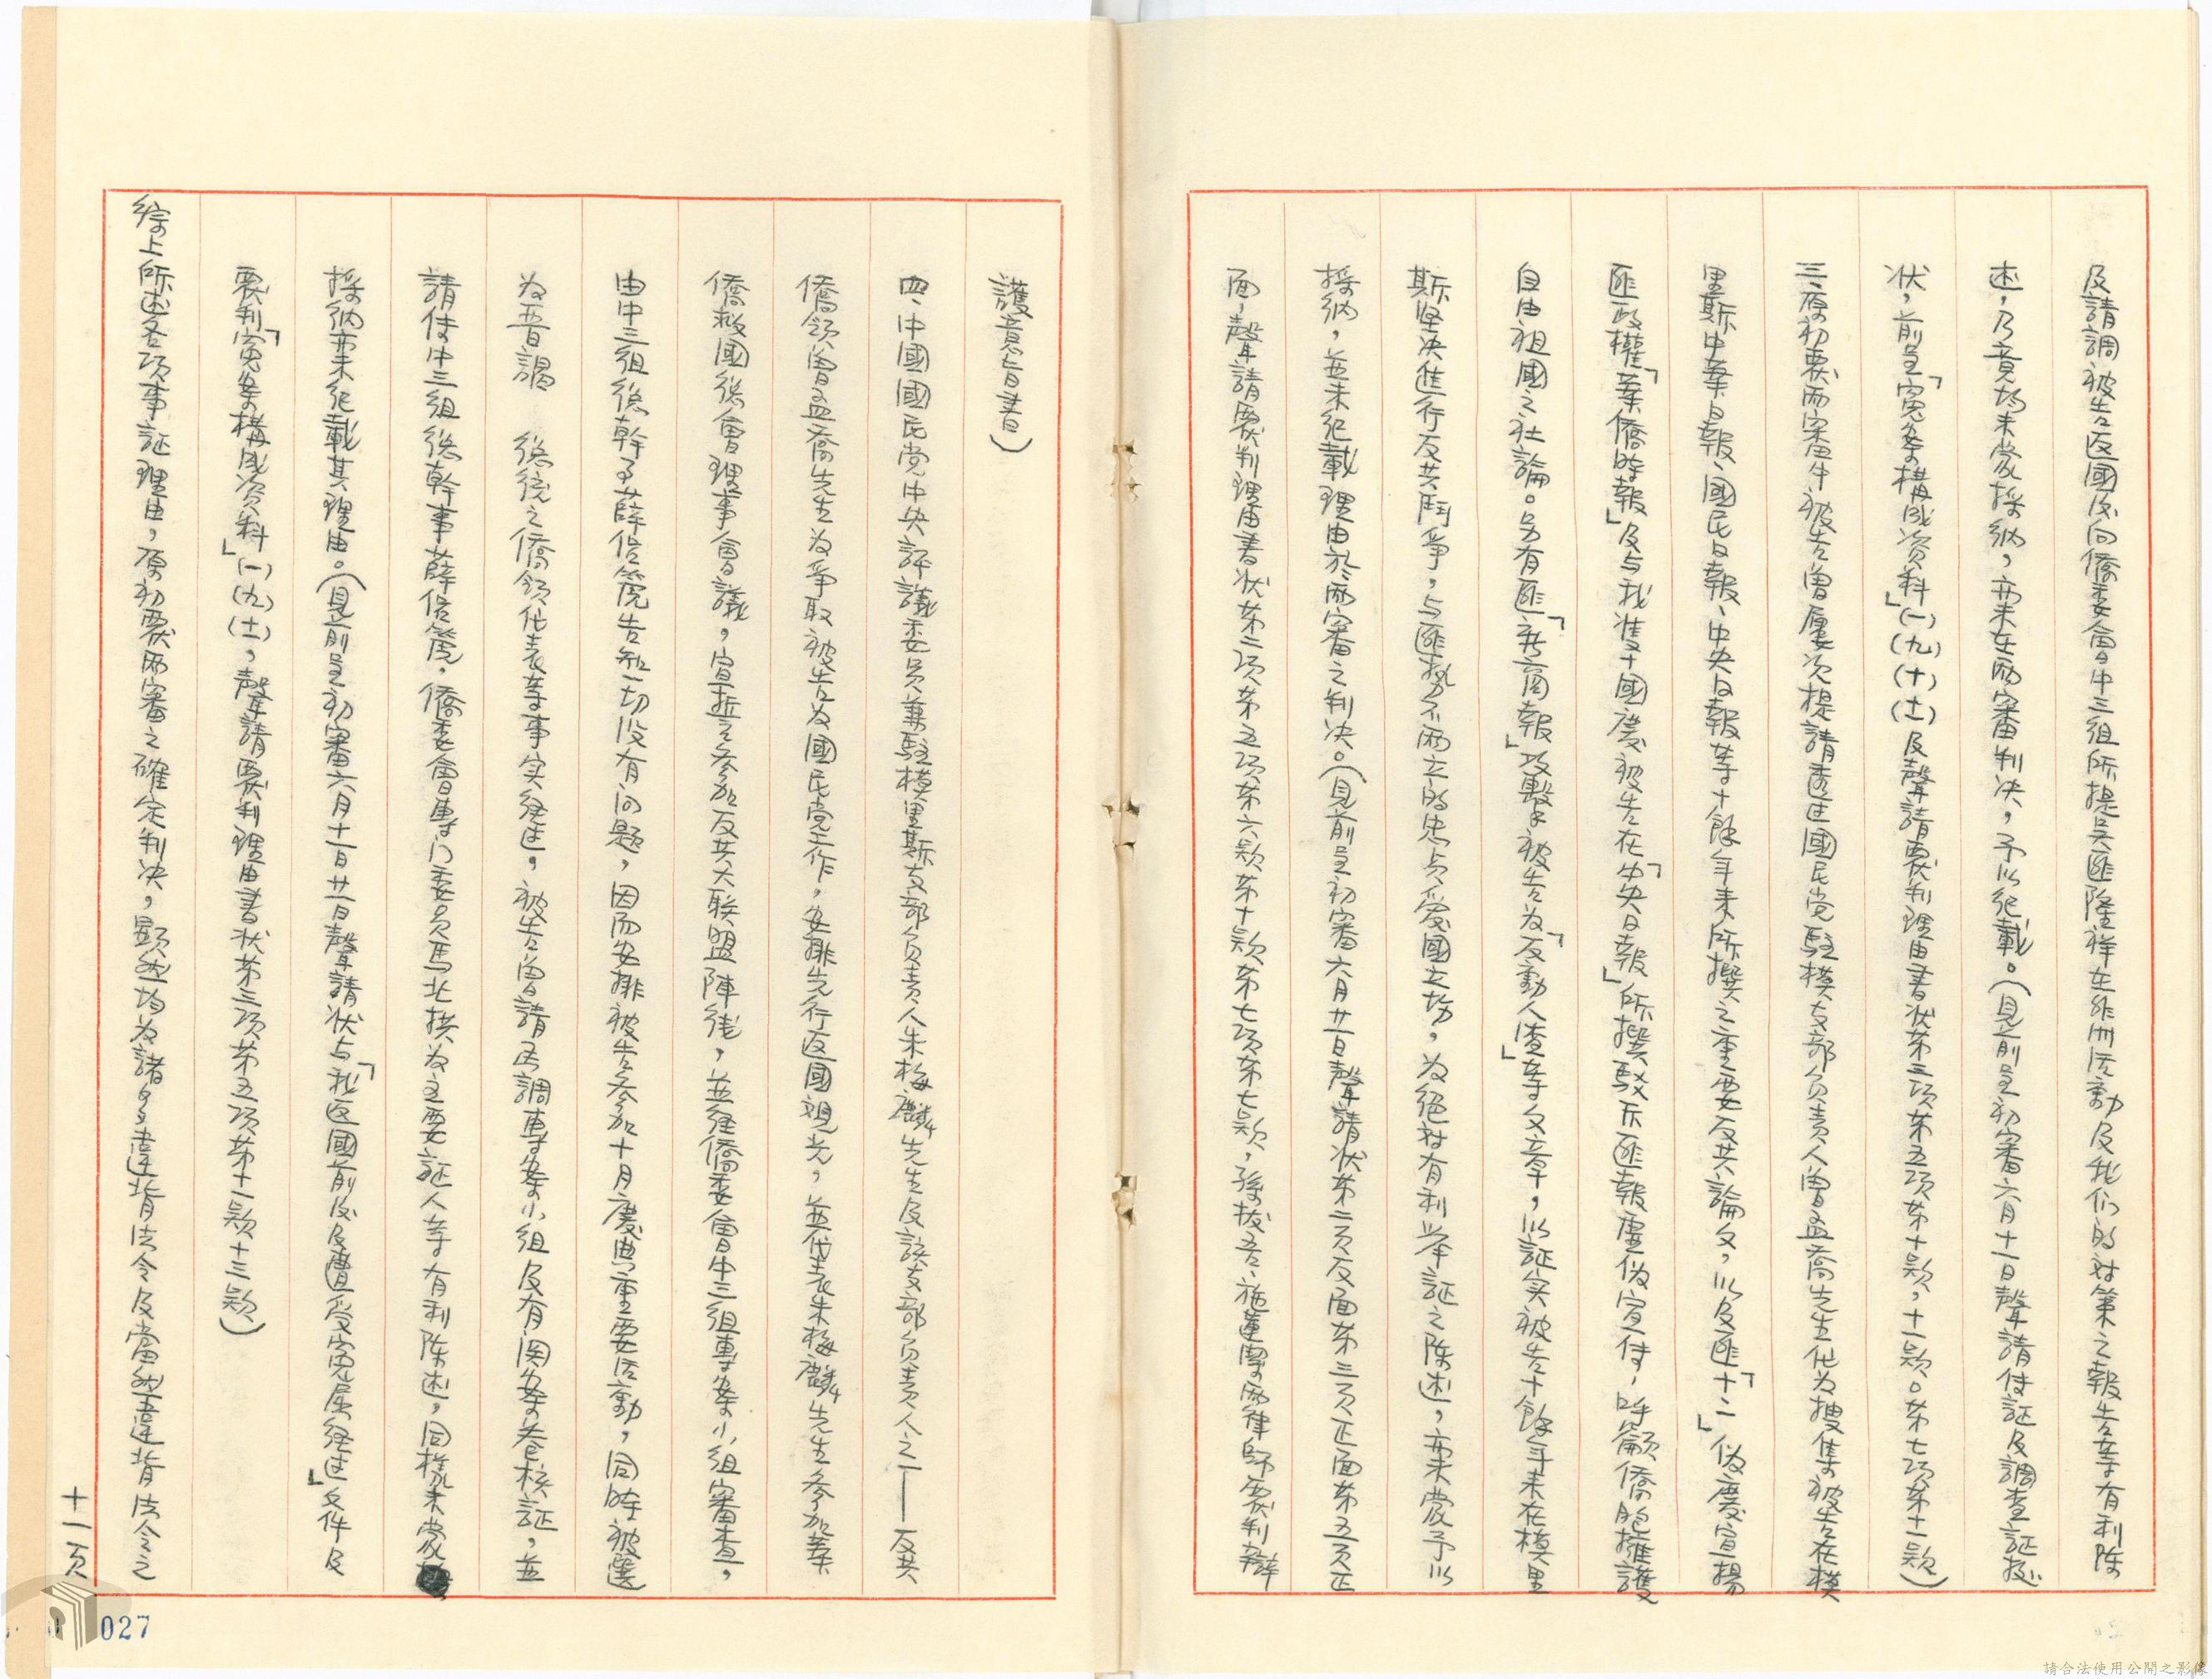 及請調被告返國後向僑委會中三組所提吳匪隆祥在非洲活動及我们的对策之報告等有利陈
述，乃竟均未蒙採納，亦未在兩審判决，予以紀載。（見前呈初審六月十一日聲請傳証及調查証据
状，前呈「冤案構成资料」(一)(九)(十)(士)及聲請覆判理由書状第三项第五项第十款，十一款。第七项第十一款）
三、原初覆两案中被告曾屡次提請查证國民党駐模支部负责人曾孟喬先生代为搜集被告在模
里斯中華日報、國民日報、中央日報等十餘年来所撰之重要反共論文，以及匪「十二」伪慶宣揚
匪政權「華僑時報」及与我雙十國慶被告在「中央日報」所撰駁斥匪報虛伪宣传，呼籲僑胞擁護
自由祖國之社論。另有匪「新商報」攻擊被告为「反動人渣等」文章，以証实被告十餘年来在模里
斯坚决進行反共鬥爭，与匪势不兩立的忠贞爱國立场，为绝对有利举証之陈述，亦未蒙予以
採納，並未紀載理由於兩審之判决。（見前呈初審六月廿一日聲請状第二页反面第三页正面第五页正
面，聲請覆判理由書状第二项第五项第六款第十款第七项第七款，孫拔吾、施蓮罩两律師覆判辯
護意旨書）
四、中國國民党中央評議委员兼駐模里斯支部负责人朱梅麟先生及該支部负责人之一——反共
僑領曾孟喬先生为爭取被告为國民党工作，安排先行返國观光，並代表朱梅麟先生参加華
僑救國总會理事會議，宣誓参加反共大联盟陣線，並经僑委會中三組專案小組審查，
由中三組總幹事薛信篪告知一切没有问题，因而安排被告参加十月慶典重要活動，同時被選
为晋謁　总统之僑領代表等事实经过，被告曾請函調專案小組及有関案卷核証，並
請传中三組總幹事薛信篪，僑委會專门委员馬北拱为主要証人等有利陈述，同樣未蒙
採納亦未纪載其理由。（見前呈初審六月十一日廿一日聲請状与「我返國前後及遭受冤屈经过」文件及
覆判「冤案構成资料」(一)(九)(士)，聲請覆判理由書状第三项第五项第十一款十三款）
綜上所述各项事証理由，原初覆两審之確定判决，顯然均为諸多違背法令及當然違背法令之
十一页
027
請合法使用公開之影像